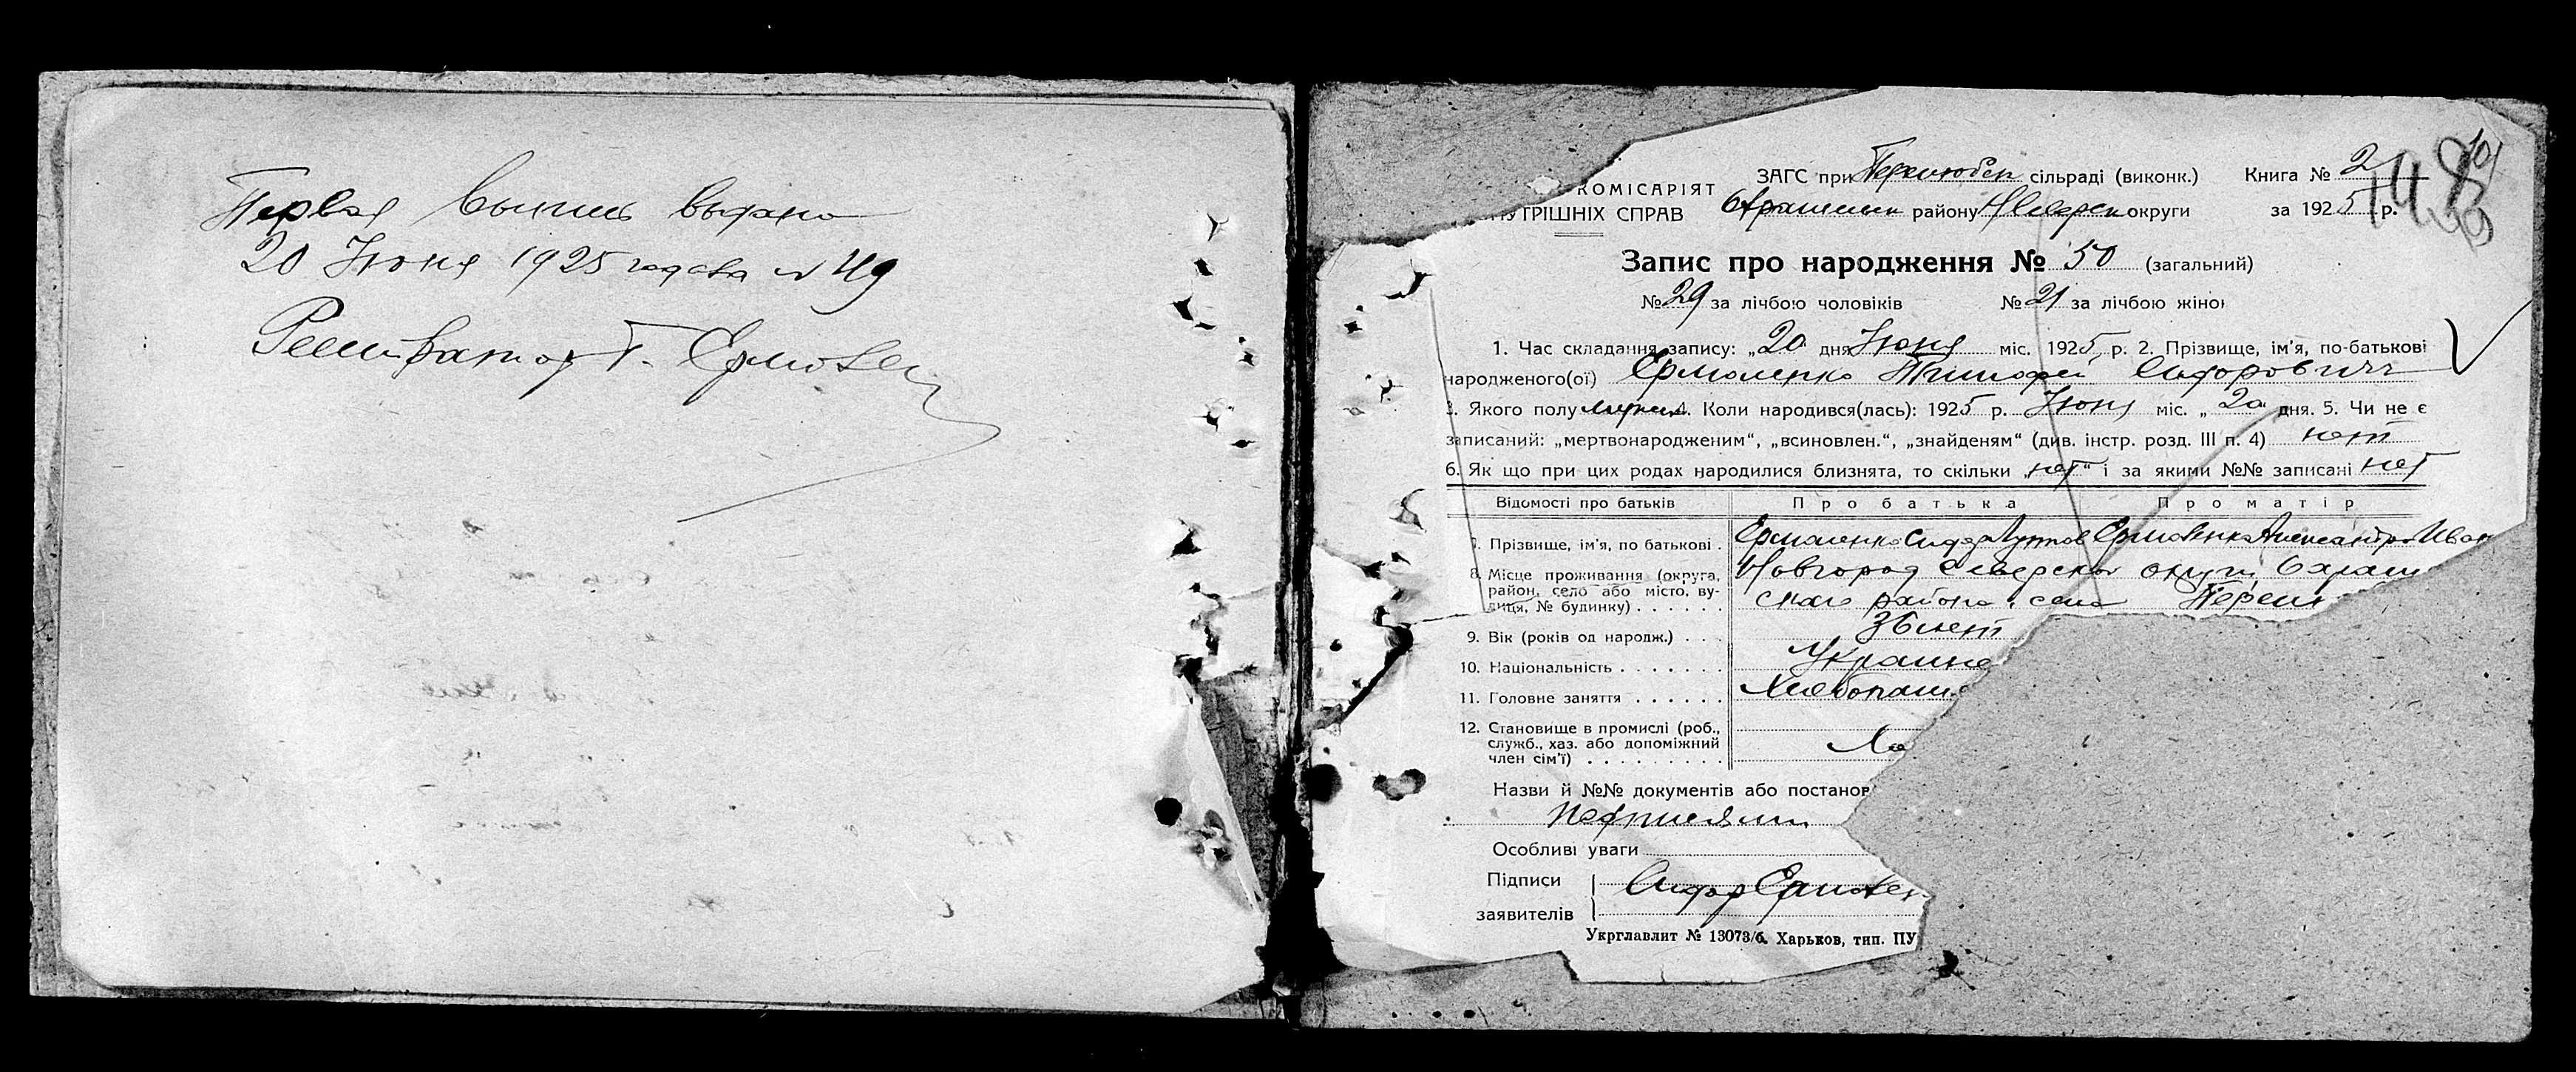 Первая выпись выдана
20 Июня 1925 года за № 49
Регистратор Г. Ермолен
КОМІСАРІЯТ
ВНУТРІШНІХ СПРАВ
ЗАГС при сільраді (виконк.)
району округи
Книга № 2
за 1925 р.
148
Запис про народження № 50 (загальний)
№ 29 за лічбою чоловіків № 21 за лічбою жінок
1. Час складання запису: „20" дня Июня міс. 1925 р. 2. Прізвище, ім'я, по-батькові
народженого(ої) Ермоленко Тимофей Сидорович
3. Якого полу мужск. 4. Коли народився(лась): 1925 р. Июня міс. „20" дня. 5. Чи не є
записаний: „мертвонародженим", „всиновлен.", „знайденям" (див. інстр. розд. III п. 4) нет
6. Як що при цих родах народилися близнята, то скільки „нет" і за якими №№ записані нет
Відомості про батьків Про батька Про матір
7. Прізвище, ім'я, по батькові. Ермоленко Сидор Ермоленко Александра Иван
8. Місце проживання (округа, Новгород Северской округи
район, село або місто, ву-
лиця, № будинку) . . . . . . ского района, села
9. Вік (років од народж.) . . . 36 лет
10. Національність . . . . . . . Украине
11. Головне заняття . . . . . . Хлебопаш
12. Становище в промислі (роб.,
служб., хаз. або допоміжний
член сім'ї) . . . . . . . . . Хо
Назви й №№ документів або постанов
Особливі уваги
Підписи
заявителів Сидор Ермолен
Укрглавлит № 13073/б. Харьков, тип. ПУ